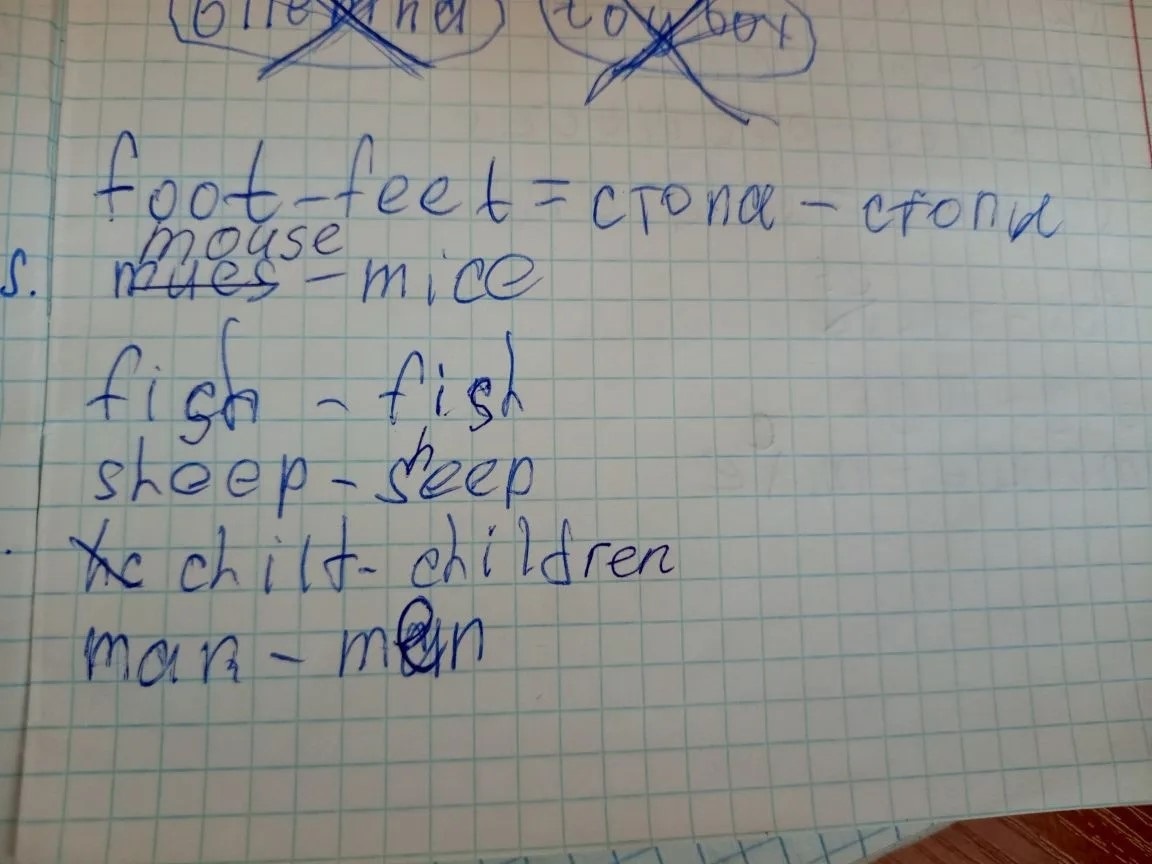 toy box
foot - feet = стопа - стопи
mouse
s. mues - mice
fish - fish
sheep - sheep
chilt - children
man - men